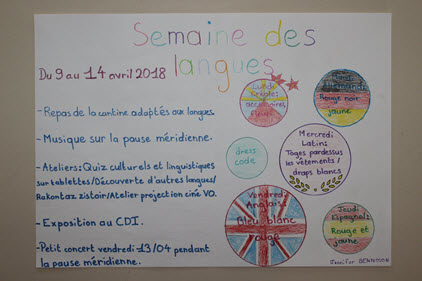 Semaine des
langues
Du 9 au 14 avril 2018
- Repas de la cantine adaptés aux langues.
- Musique sur la pause méridienne.
- Ateliers: Quiz culturels et linguistiques
sur tablettes/Découverte d'autres langues/
Rakontaz zistoir/Atelier projection ciné VO.
- Exposition au CDI.
- Petit concert vendredi 13/04 pendant
la pause méridienne.
Lundi
Créole:
accessoires
fleuris
Rouge noir
jaune
dress-
code
Mercredi
Latin:
Toges pardessus
les vêtements /
draps blancs
Vendredi
Anglais:
Bleu blanc
rouge
Jeudi
Espagnol:
Rouge et
jaune
Jennifer